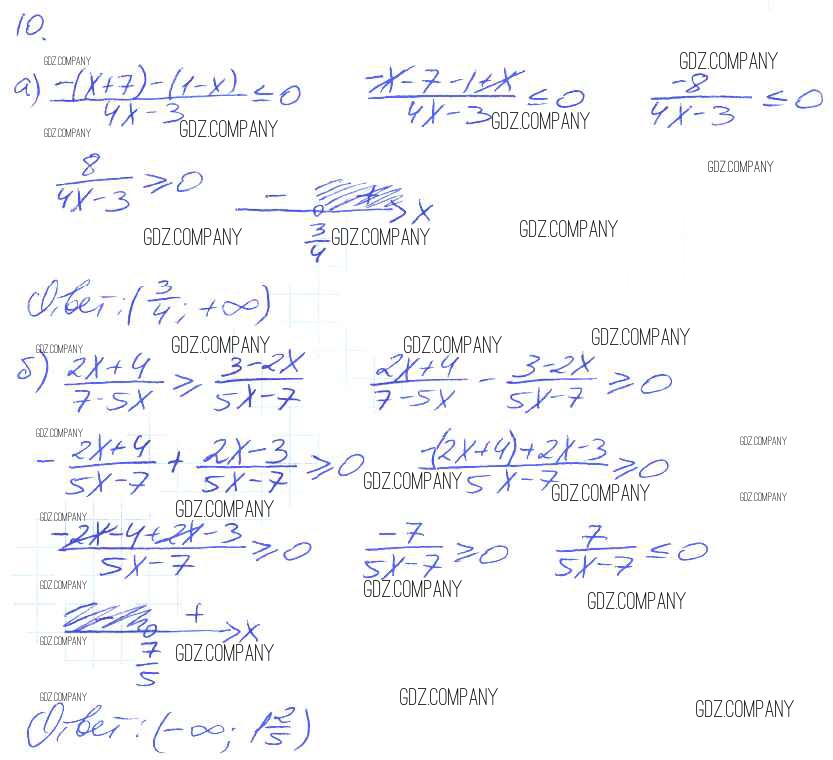 10.
GDZ.COMPANY GDZ.COMPANY
а) (-(x+7)-(1-x))/(4x-3) ≤ 0 (-x-7-1+x)/(4x-3) ≤ 0 -8/(4x-3) ≤ 0
GDZ.COMPANY GDZ.COMPANY GDZ.COMPANY
GDZ.COMPANY
8/(4x-3) ≥ 0 - 3/4 x
GDZ.COMPANY GDZ.COMPANY GDZ.COMPANY
Ответ: (3/4; +∞)
GDZ.COMPANY GDZ.COMPANY GDZ.COMPANY GDZ.COMPANY
б) (2x+4)/(7-5x) ≥ (3-2x)/(5x-7) (2x+4)/(7-5x) - (3-2x)/(5x-7) ≥ 0
GDZ.COMPANY GDZ.COMPANY
- (2x+4)/(5x-7) + (2x-3)/(5x-7) ≥ 0 (-(2x+4)+2x-3)/(5x-7) ≥ 0
GDZ.COMPANY GDZ.COMPANY GDZ.COMPANY
GDZ.COMPANY GDZ.COMPANY
(-2x-4+2x-3)/(5x-7) ≥ 0 -7/(5x-7) ≥ 0 7/(5x-7) ≤ 0
GDZ.COMPANY GDZ.COMPANY GDZ.COMPANY
+ 7/5 x
GDZ.COMPANY GDZ.COMPANY
GDZ.COMPANY GDZ.COMPANY GDZ.COMPANY
Ответ: (-∞; 1 2/5)